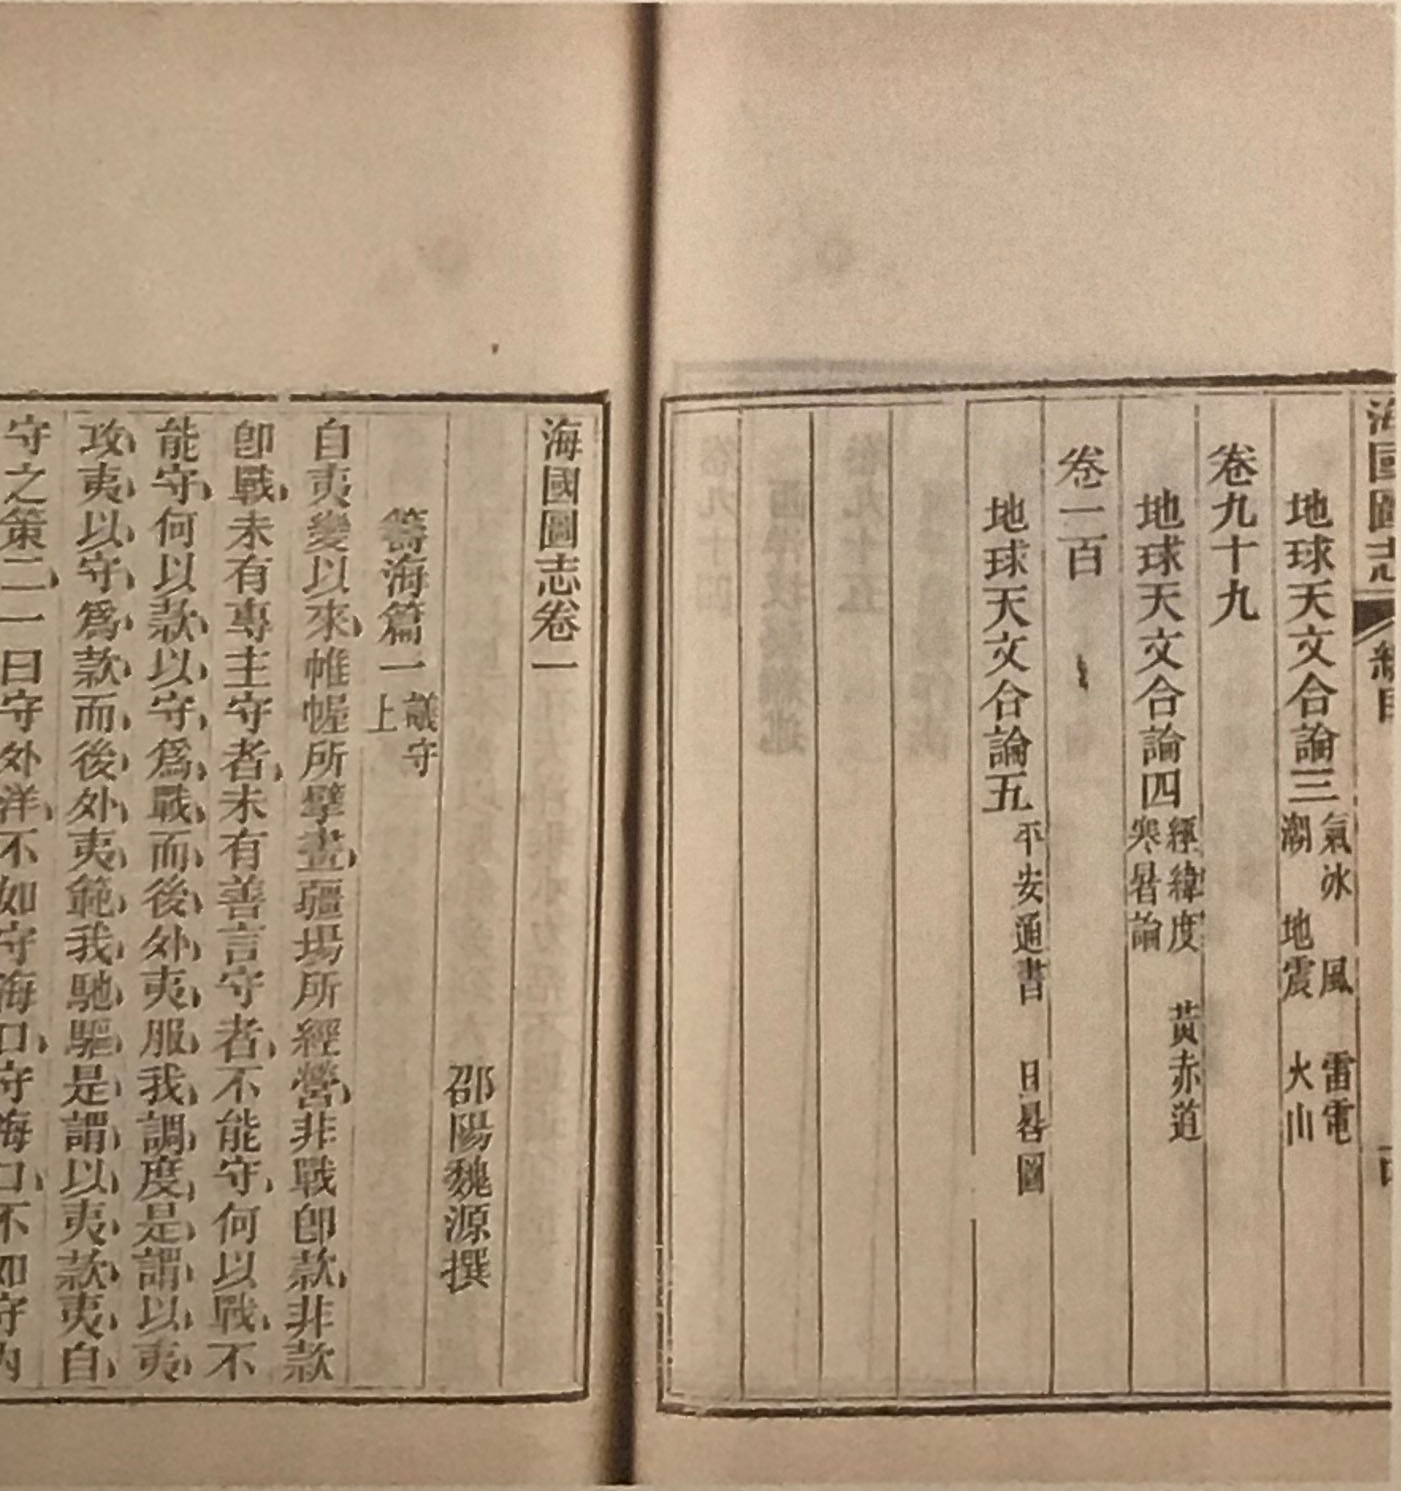 海國圖志 總目
地球天文合論三 氣冰 風 雷電
潮 地震 火山
卷九十九
地球天文合論四 經緯度 黃赤道
寒暑論
卷一百
地球天文合論五 平安通書 日晷圖
海國圖志卷一
邵陽魏源撰
籌海篇一 議守
上
自夷變以來、帷幄所擘畫、疆場所經營、非戰卽款、非款
卽戰、未有專主守者、未有善言守者、不能守、何以戰、不
能守、何以款、以守、爲戰、而後外夷、服我、調度、是謂以夷
攻夷、以守、爲款、而後外夷、範我、馳驅、是謂以夷、款夷、自
守之策二、一曰守外洋、不如守海口、守海口、不如守內